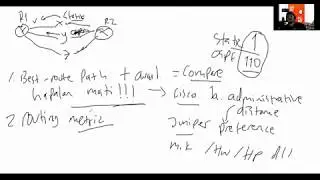 R1
Static
R2
x
y
z
Static 1
OSPF 110
1 Best-route Path + awal = Compare
hapalan mati!!! → Cisco in. administrative
distance
Juniper preference
2 routing metric
mik / Hw / Hp dll